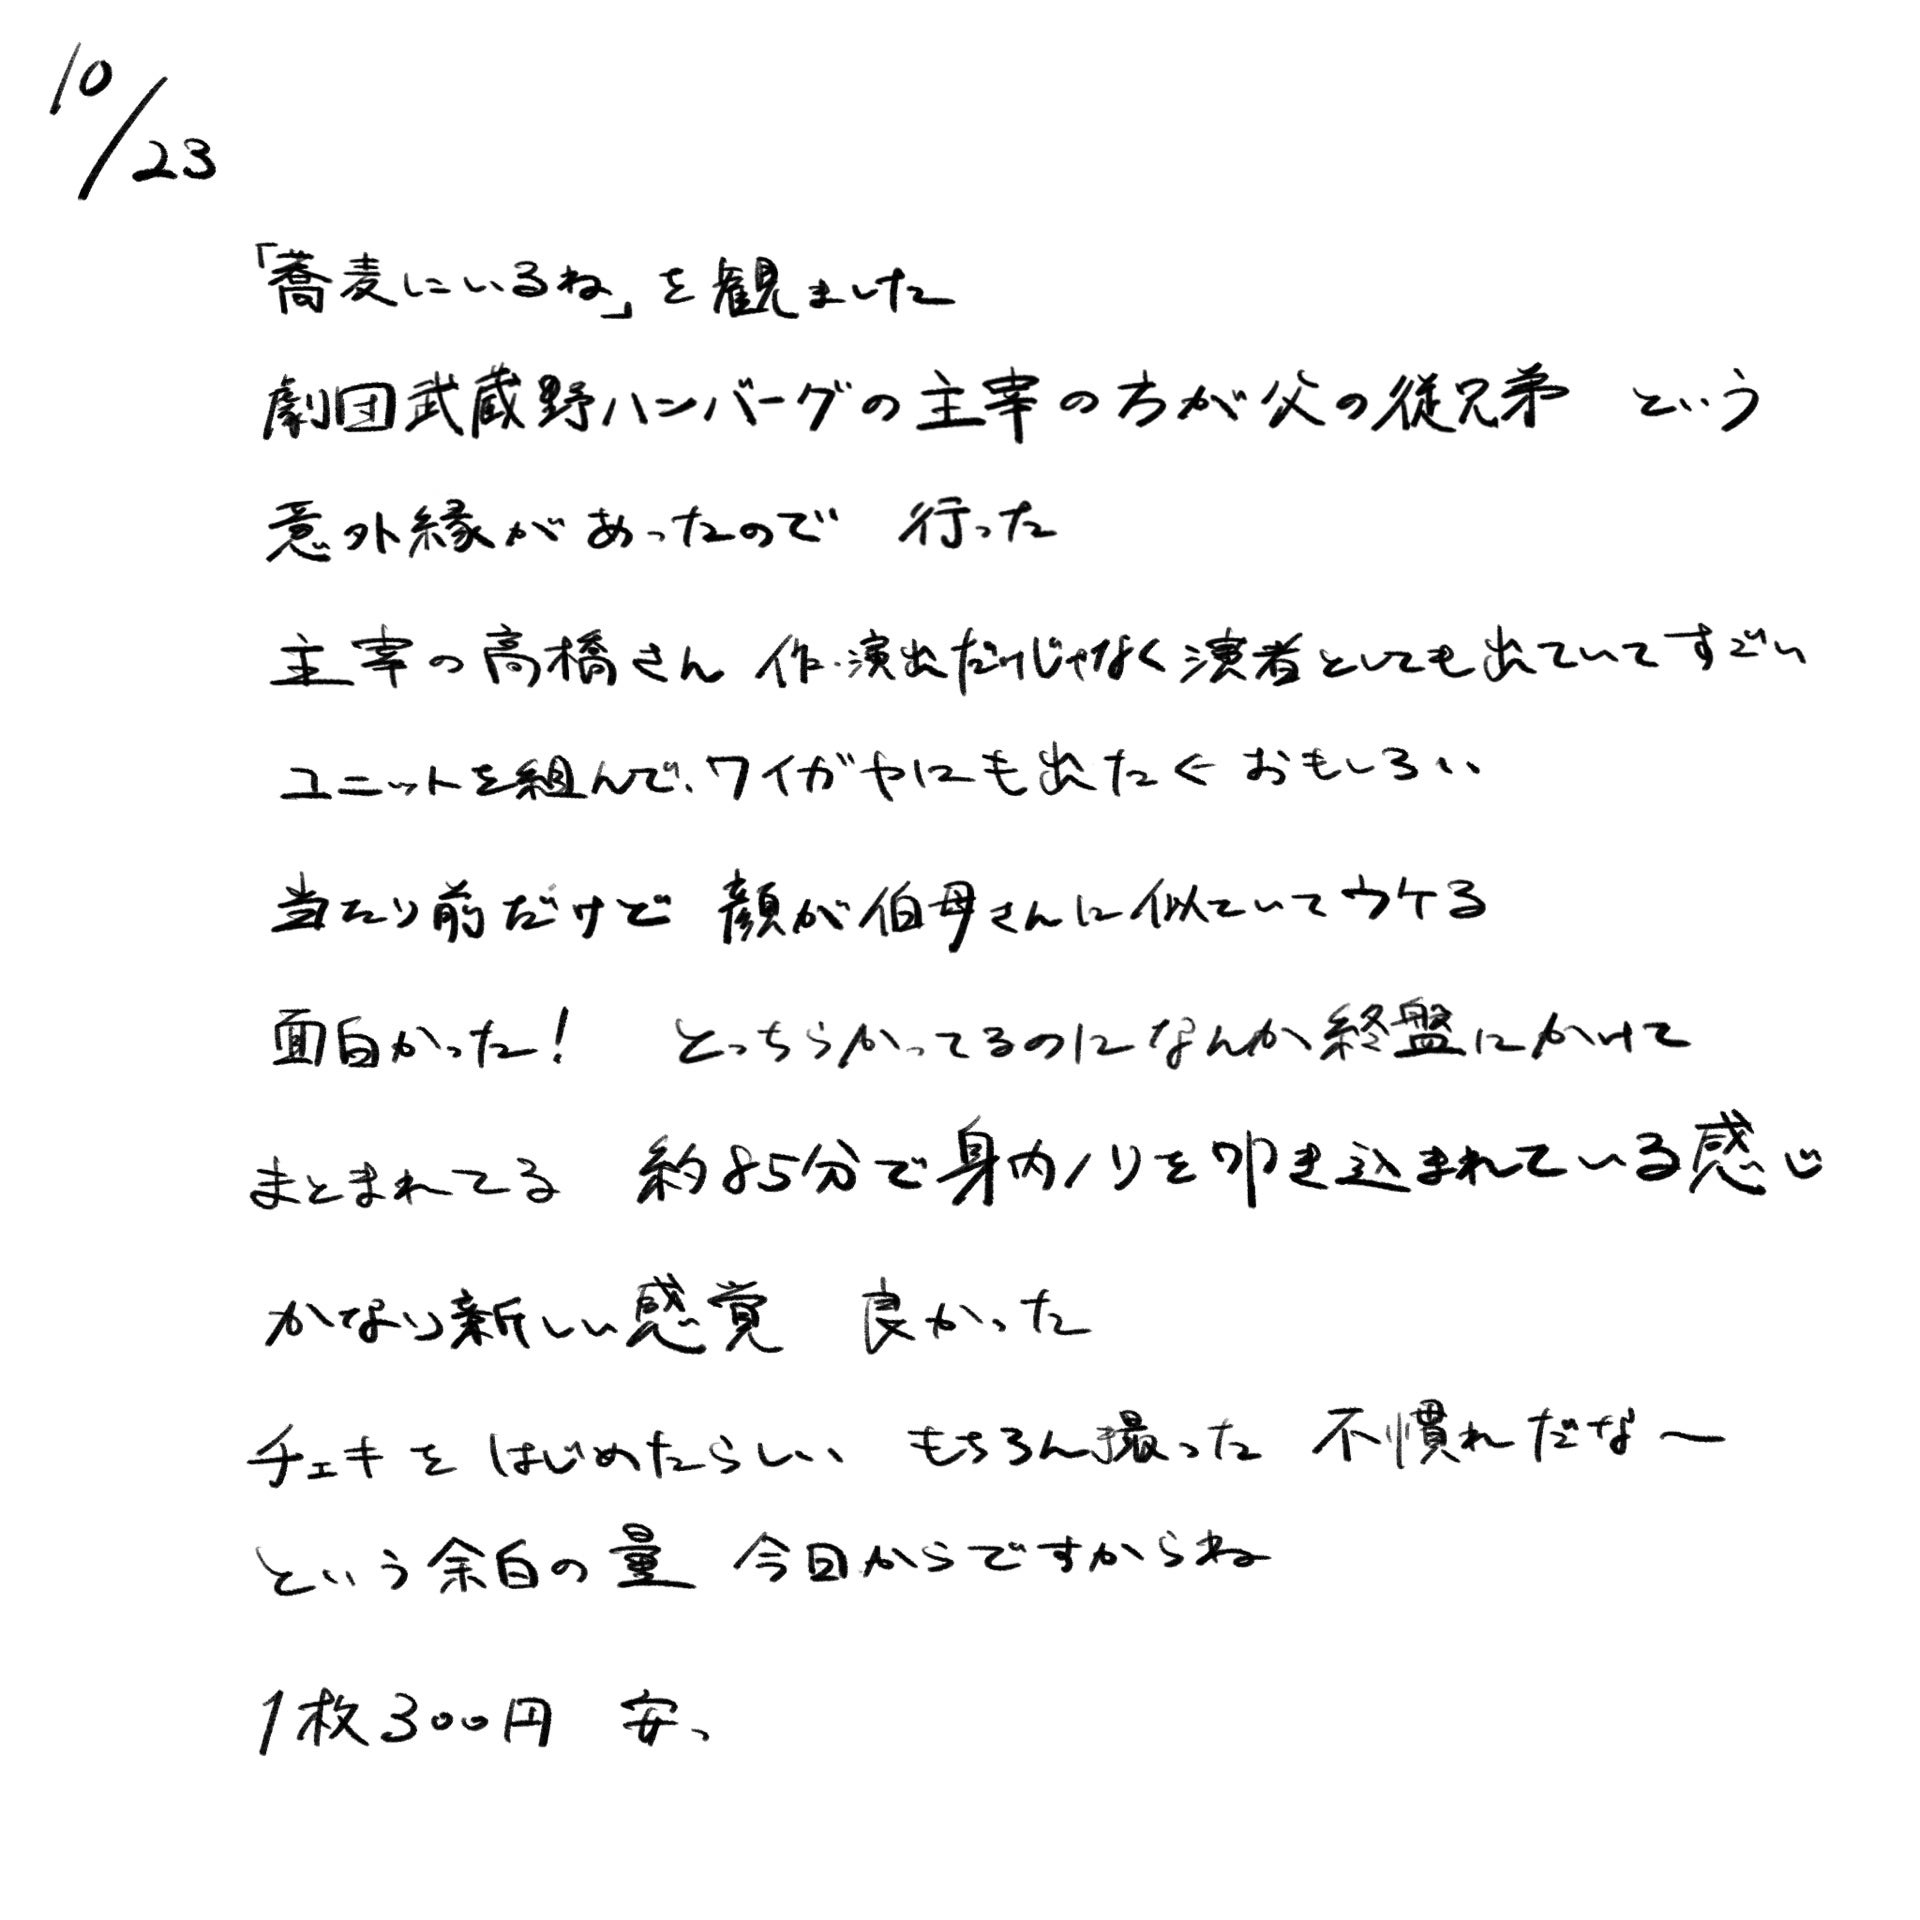 10/23
「蕎麦にいるね」を観ました
劇団武蔵野ハンバーグの主宰の方が父の従兄弟 という
意外縁があったので 行った
主宰の高橋さん 作・演出だけじゃなく演者としても出ていてすごい
ユニットを組んで、ワイガヤにも出たくおもしろい
当たり前だけど 顔が伯母さんに似ていてウケる
面白かった! とっちらかってるのになんか終盤にかけて
まとまれてる 約85分で身内ノリを叩き込まれている感じ
かなり新しい感覚 良かった
チェキをはじめたらしい もちろん撮った 不慣れだな〜
という余白の量 今回からですからね
1枚300円 安っ